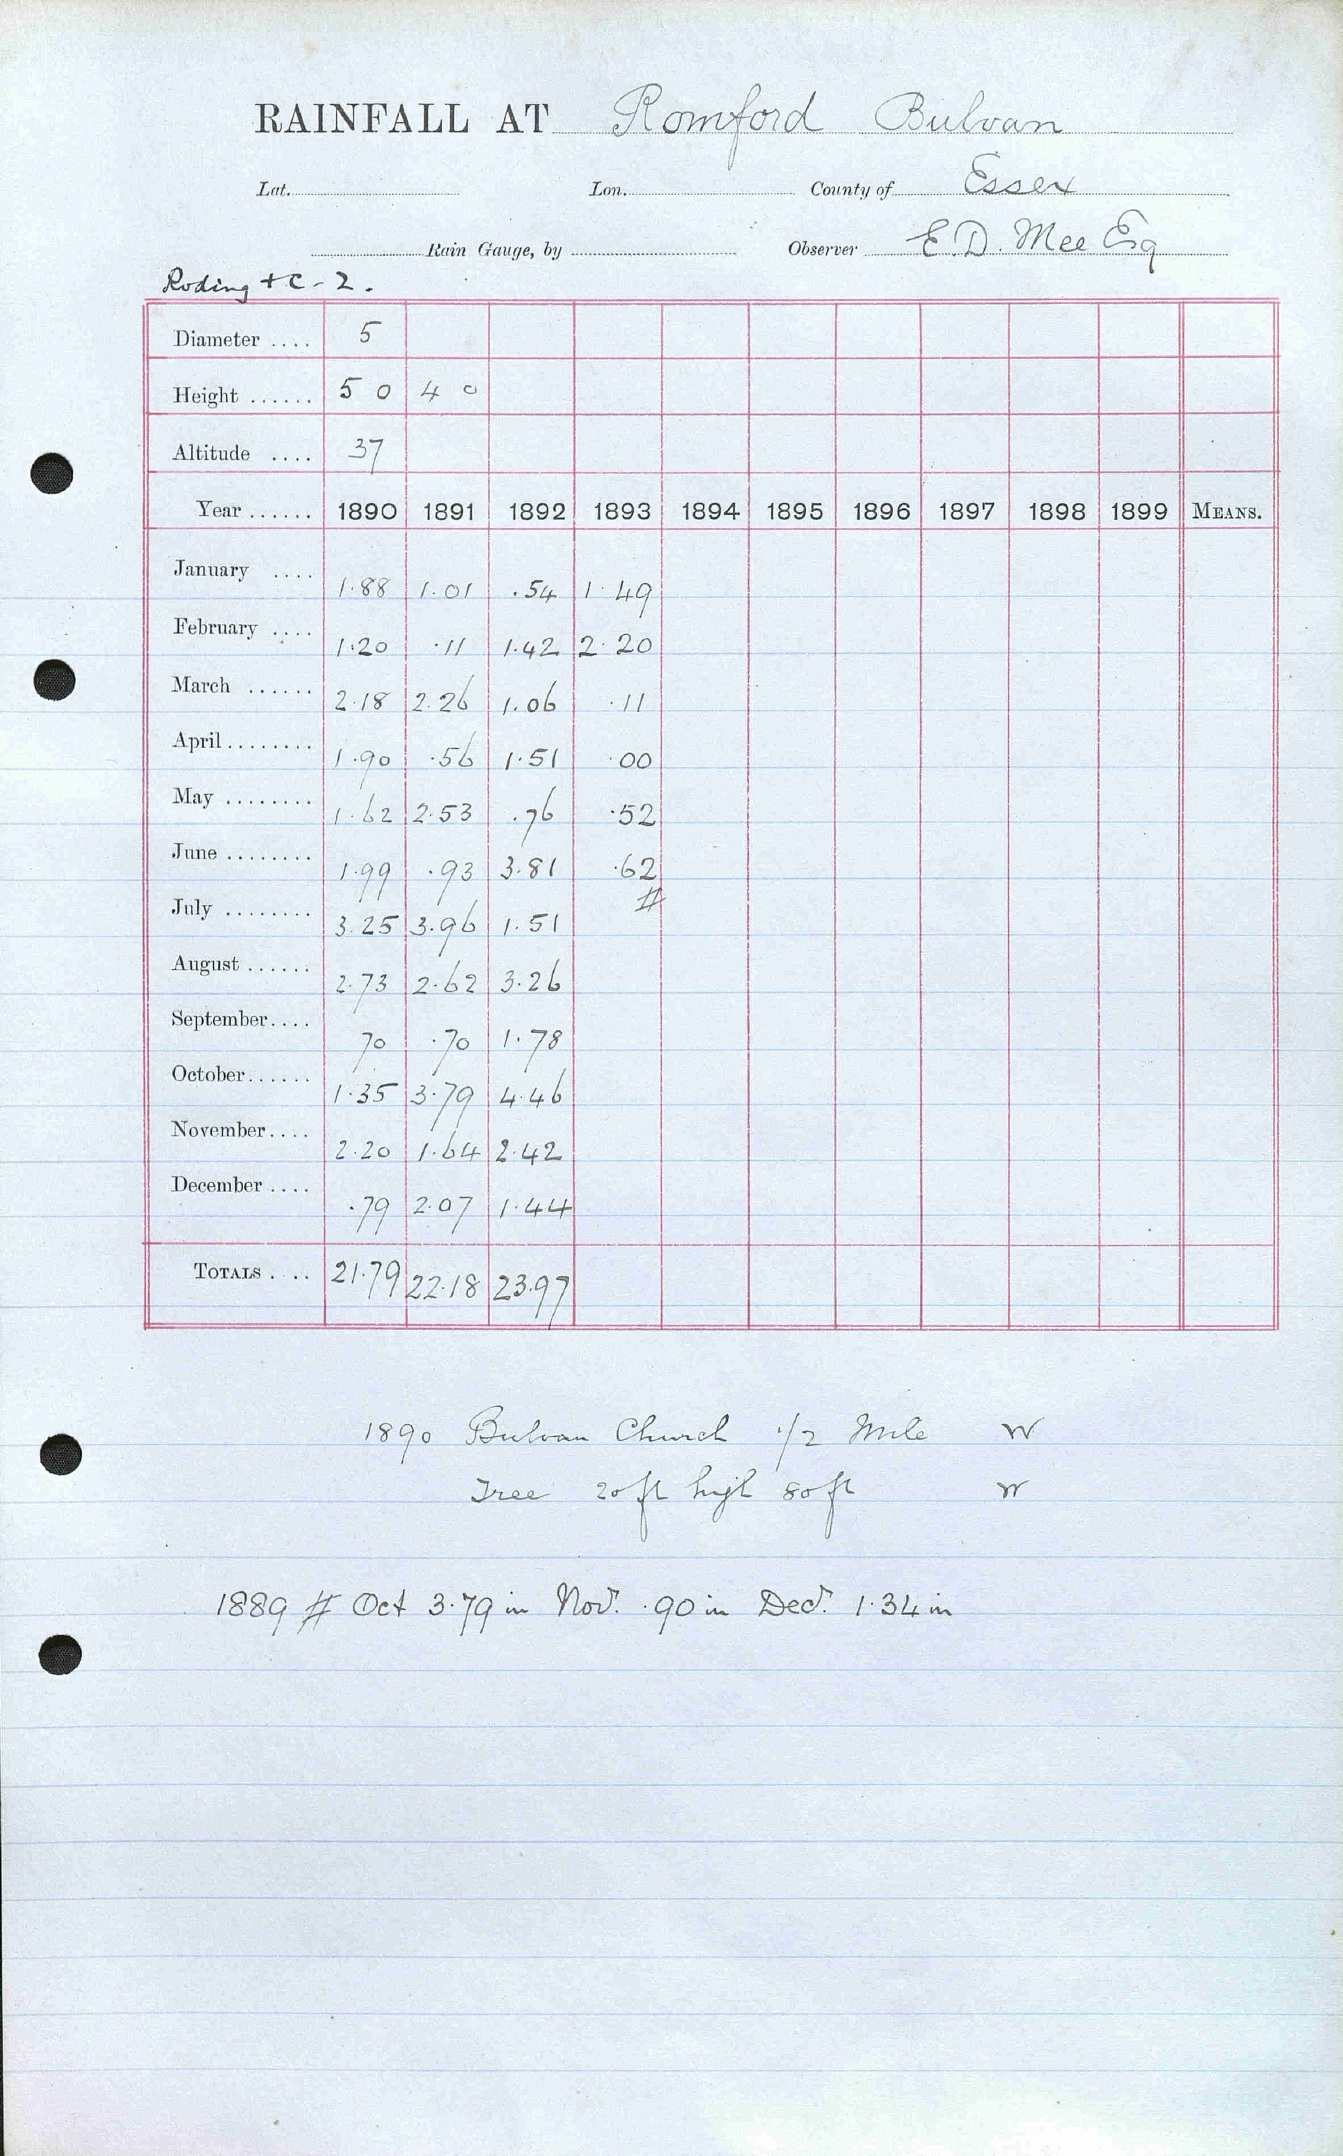 RAINFALL AT Romford Bulvan
Lat. Lon. County of Essex
Rain Gauge, by Observer E. D. Mee Esq
Roding + C - 2.
Diameter .... 5
Height ...... 5 0 4 0
Altitude .... 37
Year ...... 1890 1891 1892 1893 1894 1895 1896 1897 1898 1899 MEANS.
January .... 1.88 1.01 .54 1.49
February .... 1.20 .11 1.42 2.20
March ...... 2.18 2.26 1.06 .11
April ........ 1.90 .56 1.51 .00
May ........ 1.62 2.53 .76 .52
June ........ 1.99 .93 3.81 .62
#
July ........ 3.25 3.96 1.51
August ...... 2.73 2.62 3.26
September.... 70 .70 1.78
October...... 1.35 3.79 4.46
November.... 2.20 1.64 2.42
December .... .79 2.07 1.44
TOTALS .... 21.79 22.18 23.97
1890 Bulvan Church 1/2 Mile W
Tree 20 ft high 80 ft W
1889 # Oct 3.79 in Nov. .90 in Dec. 1.34 in